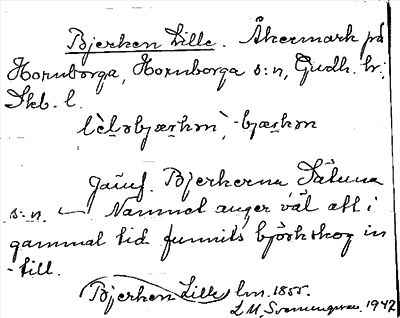 Bjerken Lille. Åkermark på
Hornborga, Hornborga s:n, Gudh. hr,
Skb. l.
Jämf. Bjerkerna, Sätuna
s:n. — Namnet anger väl att i
gammal tid funnits björkskog in
-till.
Bjerken Lille lm. 1855.
L M, Svenungsson. 1942